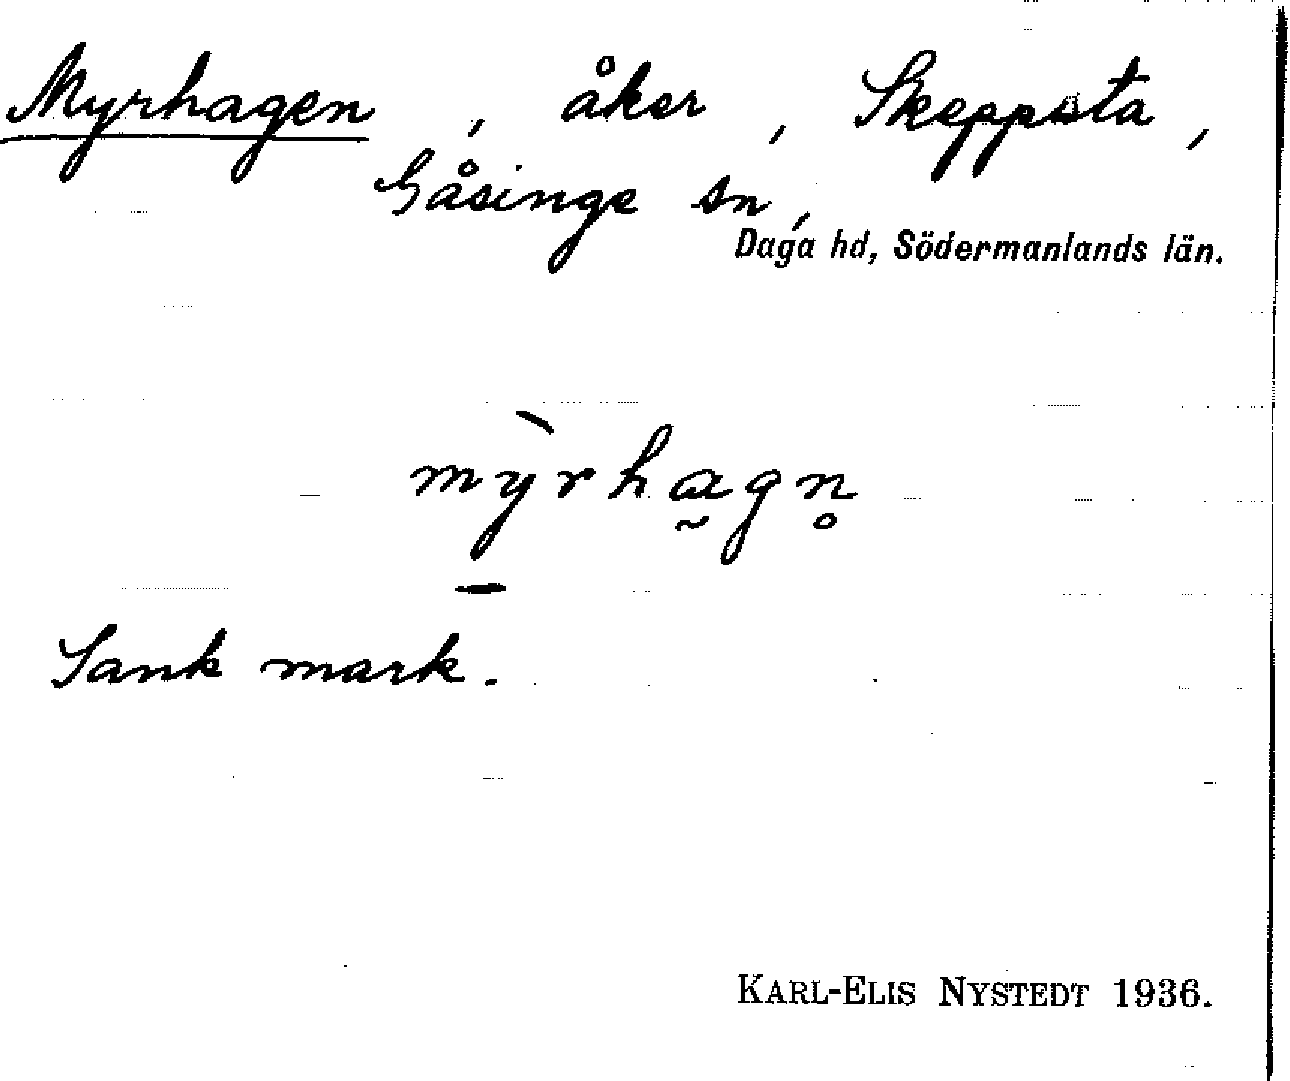 Myrhagen, åker, Skeppsta,
Gåsinge sn,
Daga hd, Södermanlands län.
mỳ̱rha̰gn̥
Sank mark.
KARL-ELIS NYSTEDT 1936.